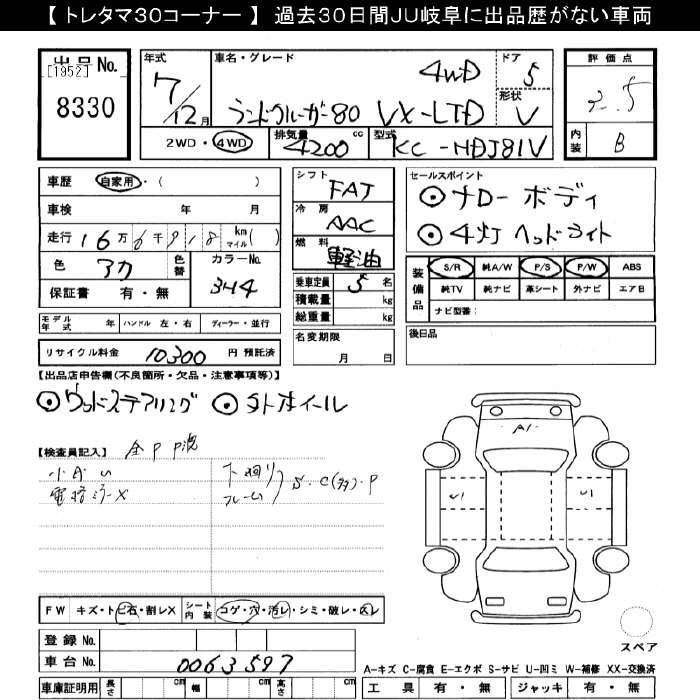 【 トレタマ30コーナー 】 過去30日間JU岐阜に出品歴がない車両
出品 No.
[1952]
8330
年式
7/12月
車名・グレード
4WD
ランドクルーザー80 VX-LTD
ドア
5
形状
V
2WD・4WD
排気量 4200 cc
型式 KC-HDJ81V
評価点
3.5
内装 B
車歴 自家用・( )
車検 年 月
走行 16万6千918 km マイル( )
色 アカ 色替 カラーNo. 3H4
保証書 有・無
シフト FAT
冷房 AAC
燃料 軽油
乗車定員 5 名
積載量 kg
総重量 kg
名変期限
月 日
セールスポイント
◎ナローボディ
◎4灯ヘッドライト
装備品
S/R 純A/W P/S P/W ABS
純TV 純ナビ 革シート 外ナビ エアB
ナビ型番:
後日品
モデル年式 年 ハンドル 左・右 ディーラー・並行
リサイクル料金 10300 円 預託済
【出品店申告欄(不良箇所・欠品・注意事項等)】
◎ウッドステアリング ◎外ホイール
【検査員記入】
小A U
電格ミラーX
下廻り
フレーム
S・C(多)・P
A1
U1
U1
FW キズ・トビ石・割レX
シート内装 コゲ・穴・汚レ・シミ・破レ・スレ
登録 No.
車台 No. 0063597
車庫証明用 長さ cm 幅 cm 高さ cm
スペア
A-キズ C-腐食 E-エクボ S-サビ U-凹ミ W-補修 XX-交換済
工具 有・無 ジャッキ 有・無